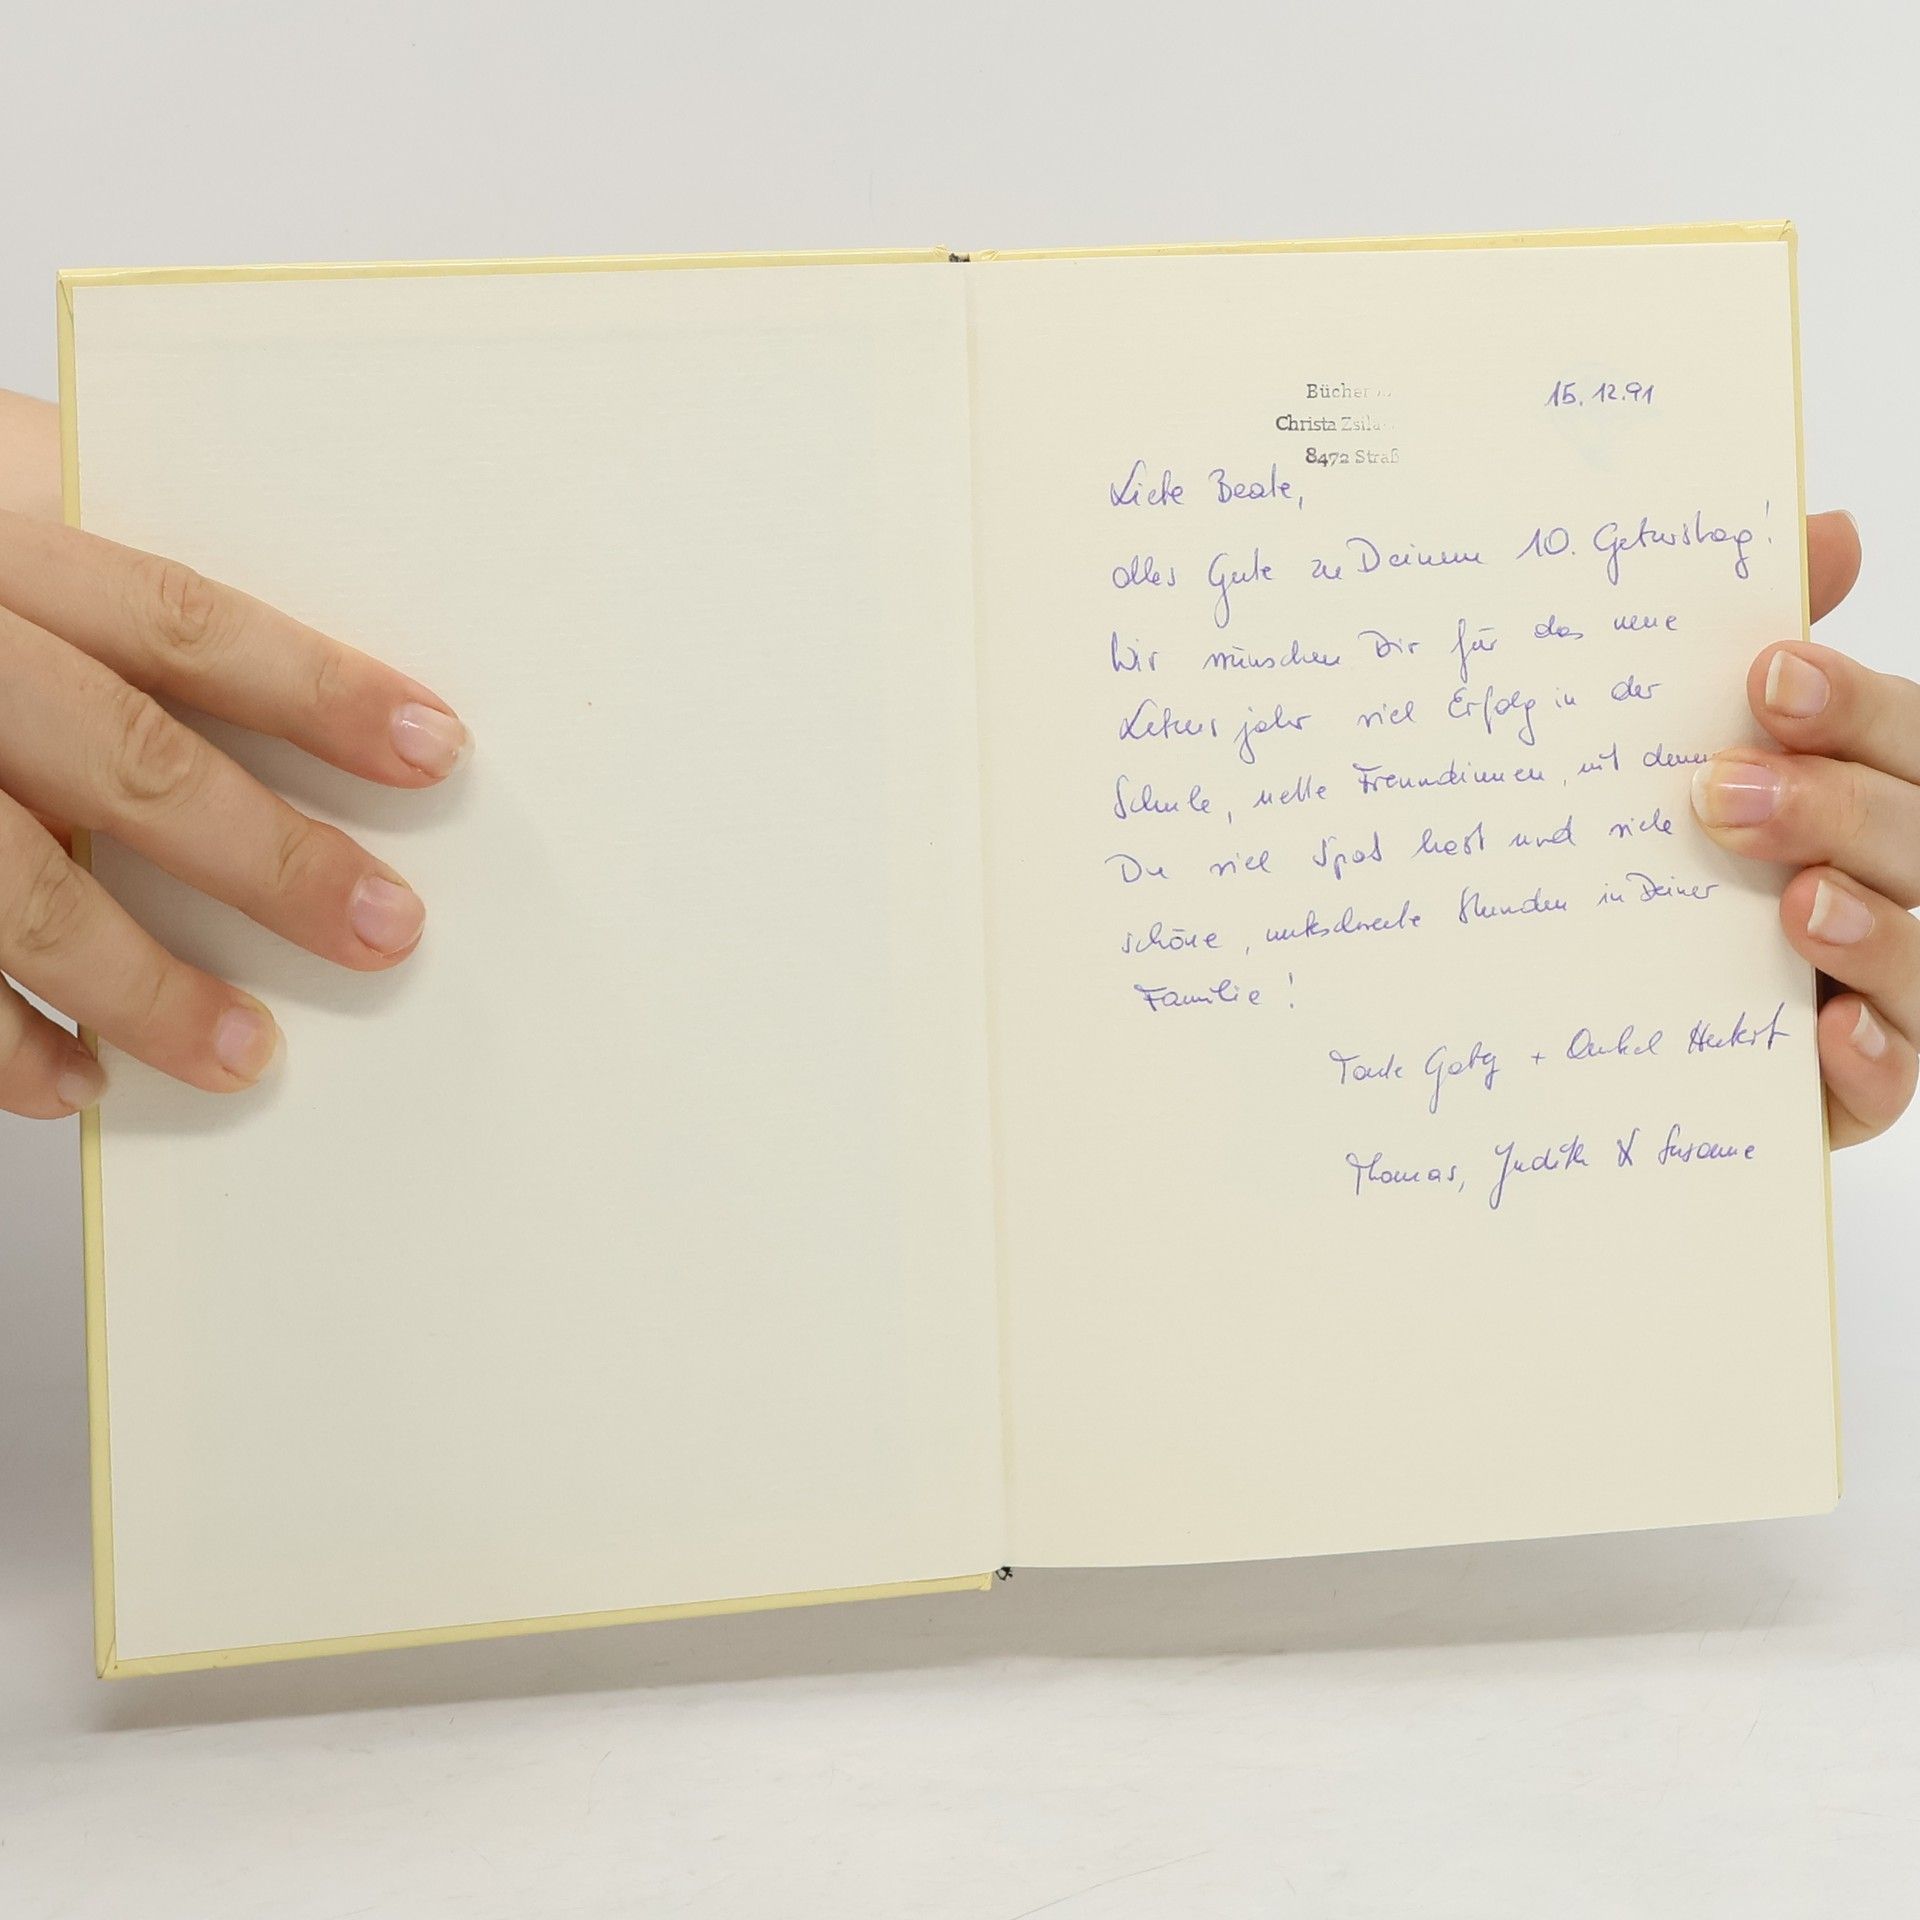 Bücher
15.12.91
Christa Zsila
8472 Straß
Liebe Beate,
alles Gute zu Deinem 10. Geburtstag!
Wir wünschen Dir für das neue
Lebensjahr viel Erfolg in der
Schule, nette Freundinnen, mit denen
Du viel Spaß hast und viele
schöne, unbeschwerte Stunden in Deiner
Familie!
Tante Gaby + Onkel Herbert
Thomas, Judith & Susanne